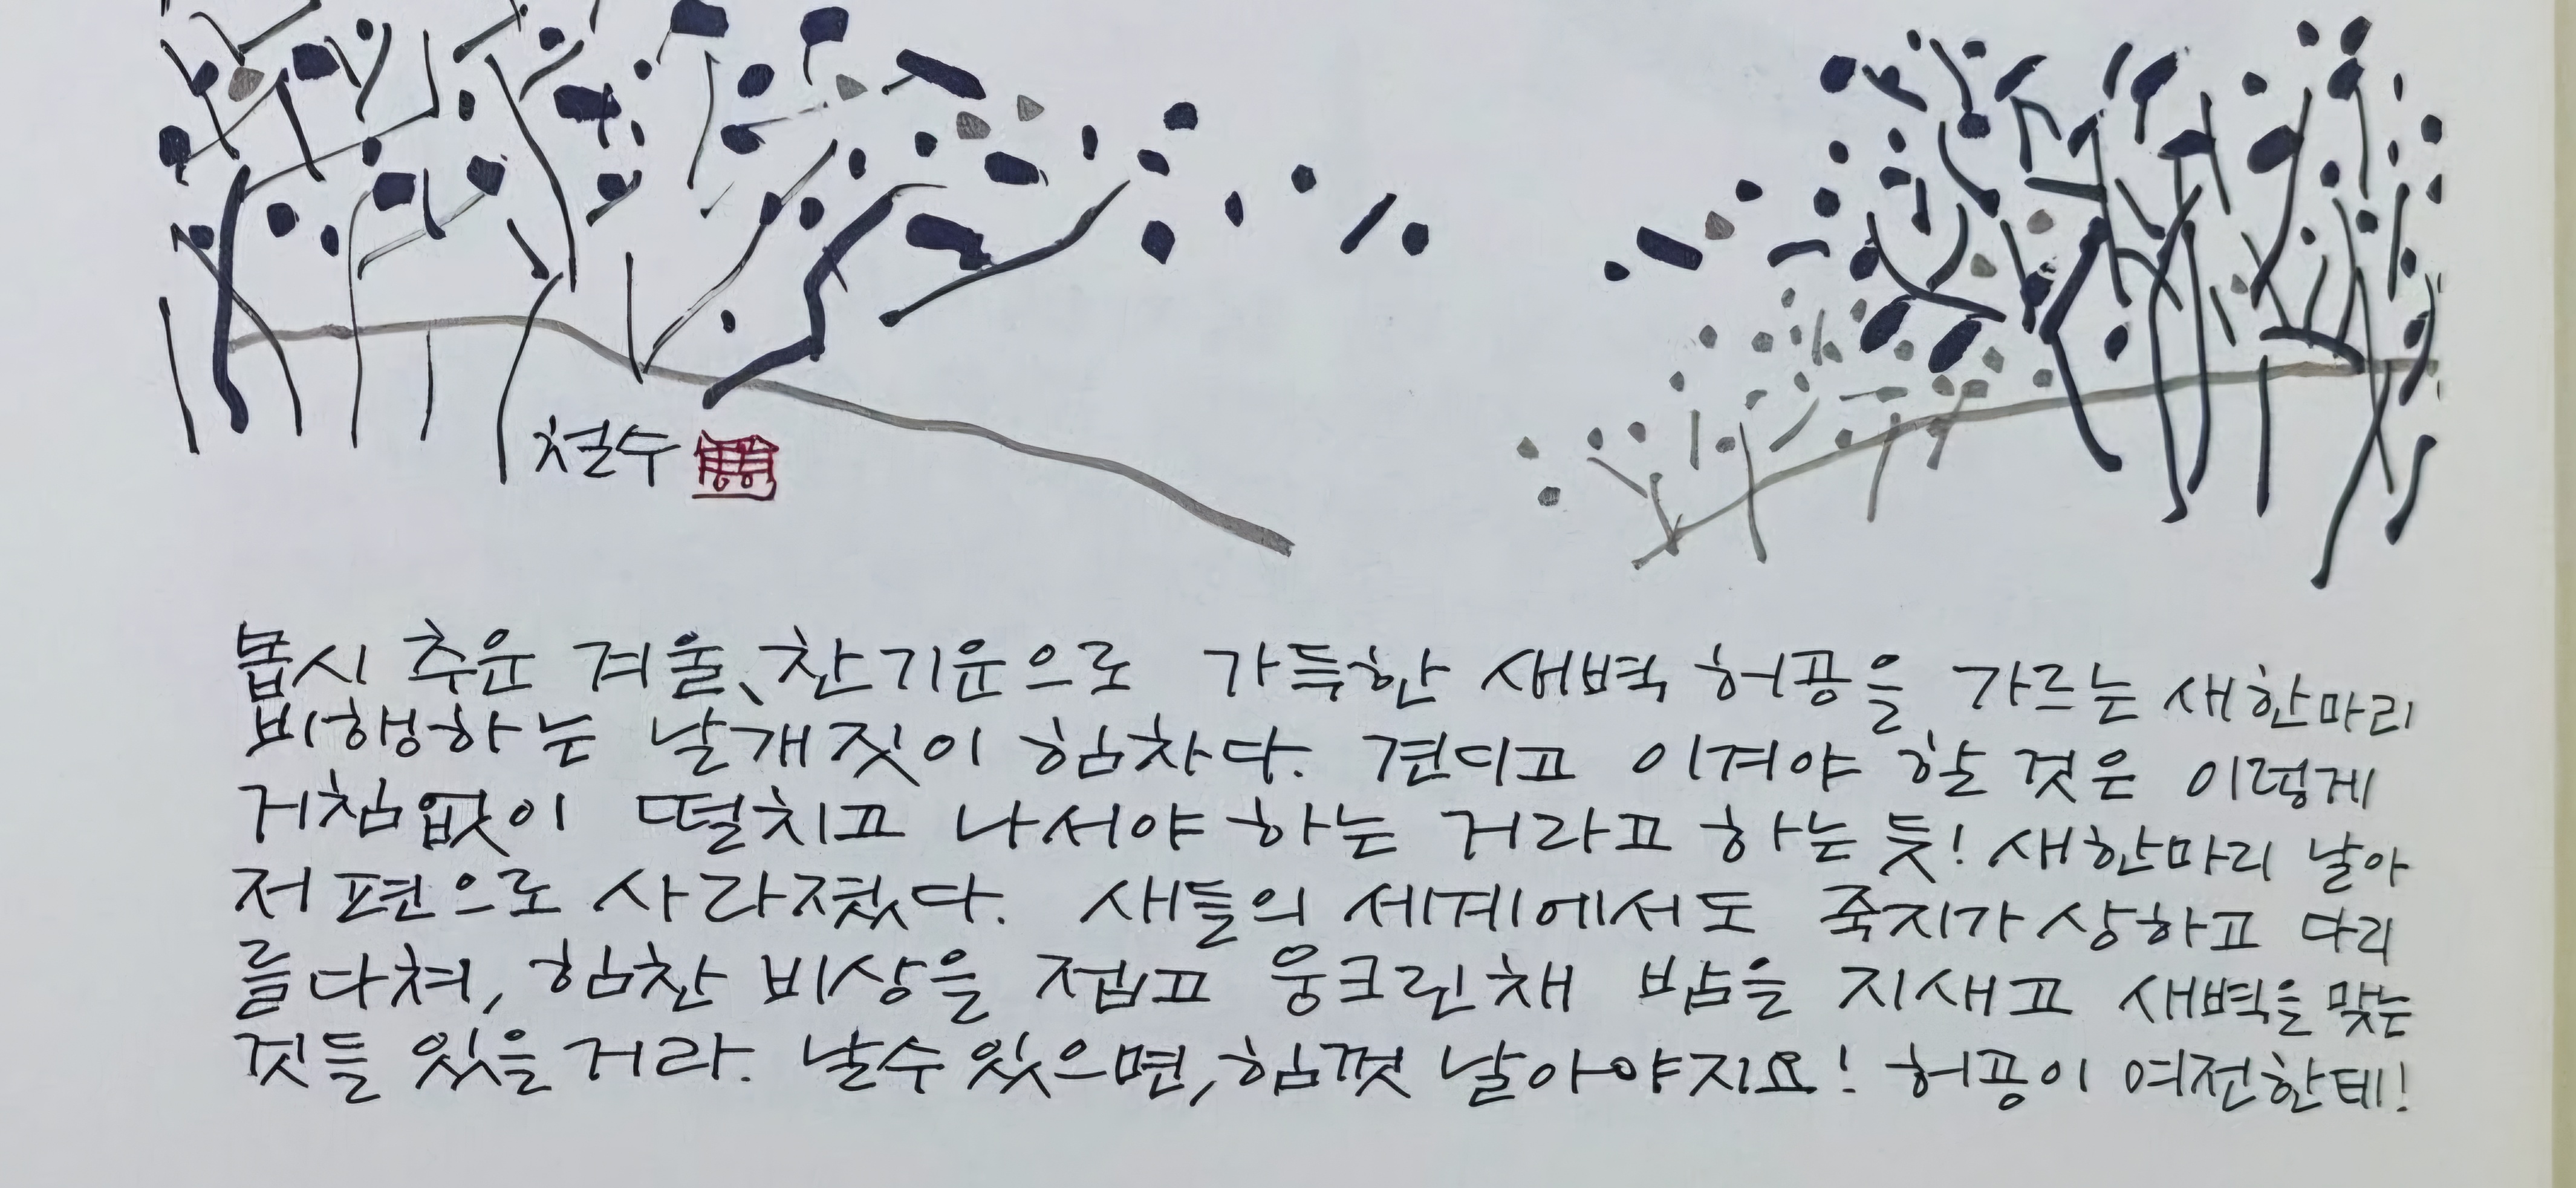 철수
몹시 추운 겨울、찬기운으로 가득한 새벽 허공을 가르는 새한마리
비행하는 날개짓이 힘차다. 견디고 이겨야 할 것은 이렇게
거침없이 떨치고 나서야 하는 거라고 하는 듯! 새한마리 날아
저편으로 사라졌다. 새들의 세계에서도 죽지가 상하고 다리
를다쳐, 힘찬 비상을 접고 웅크린채 밤을 지새고 새벽을 맞는
것들 있을거라. 날수있으면, 힘껏 날아야지요! 허공이 여전한데!